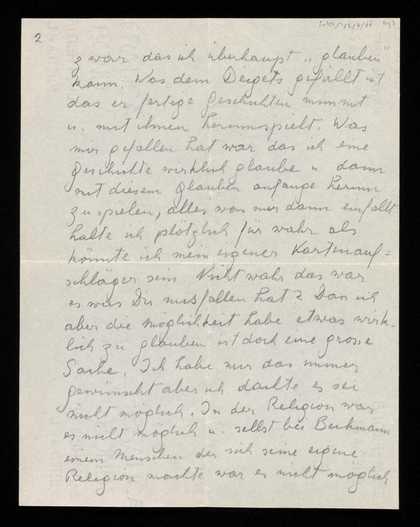 2
zwar das ich überhaupt „glauben"
kann. Was dem Deigets gefällt ist
das er fertige Geschichten nimmt
u. mit ihnen herumspielt. Was
mir gefallen hat war das ich eine
Geschichte wirklich glaube u dann
mit diesem Glauben anfange herum
zu spielen, alles was mir dann einfällt
halte ich plötzlich für wahr als
könnte ich mein eigener Kartenauf=
schläger sein Nicht wahr das war
es was Dir missfallen hat? Das ich
aber die Möglichkeit habe etwas wirk-
lich zu glauben ist doch eine grosse
Sache. Ich habe mir das immer
gewünscht aber ich dachte es sei
nicht möglich. In der Religion war
es nicht möglich u. selbst bei Beckmann
einem Menschen der sich seine eigene
Religion machte war es nicht möglich